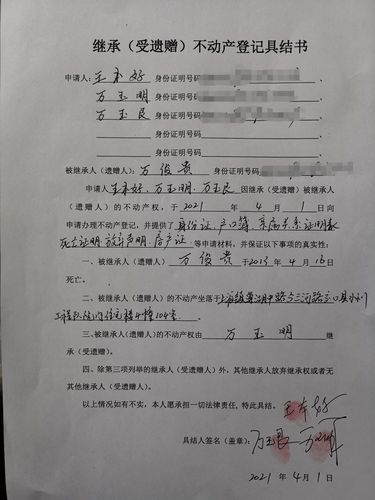 继承（受遗赠）不动产登记具结书
申请人：王本好 身份证明号码、
万玉明 身份证明号码、
万玉良 身份证明号码、
身份证明号码、
身份证明号码
被继承人（遗赠人）：万俊贵 身份证明号码
申请人 王本好、万玉明、万玉良 因继承（受遗赠）被继承人
（遗赠人）的不动产权，于 2021 年 4 月 1 日向
申请办理不动产登记，并提供了 身份证、户口簿、亲属关系证明表
死亡证明、放弃声明、房产证 等申请材料，并保证以下事项的真实性：
一、被继承人（遗赠人） 万俊贵 于 2013 年 4 月 16 日
死亡。
二、被继承人（遗赠人）的不动产坐落于
工程队院内住宅楼4幢104室。
三、被继承人（遗赠人）的不动产权由 万玉明 继
承（受遗赠）。
四、除第三项列举的继承人（受遗赠人）外，其他继承人放弃继承权或者无
其他继承人（受遗赠人）。
以上情况如有不实，本人愿承担一切法律责任，特此具结。 王本好
具结人签名（盖章）：万玉良 万玉明
2021 年 4 月 1 日